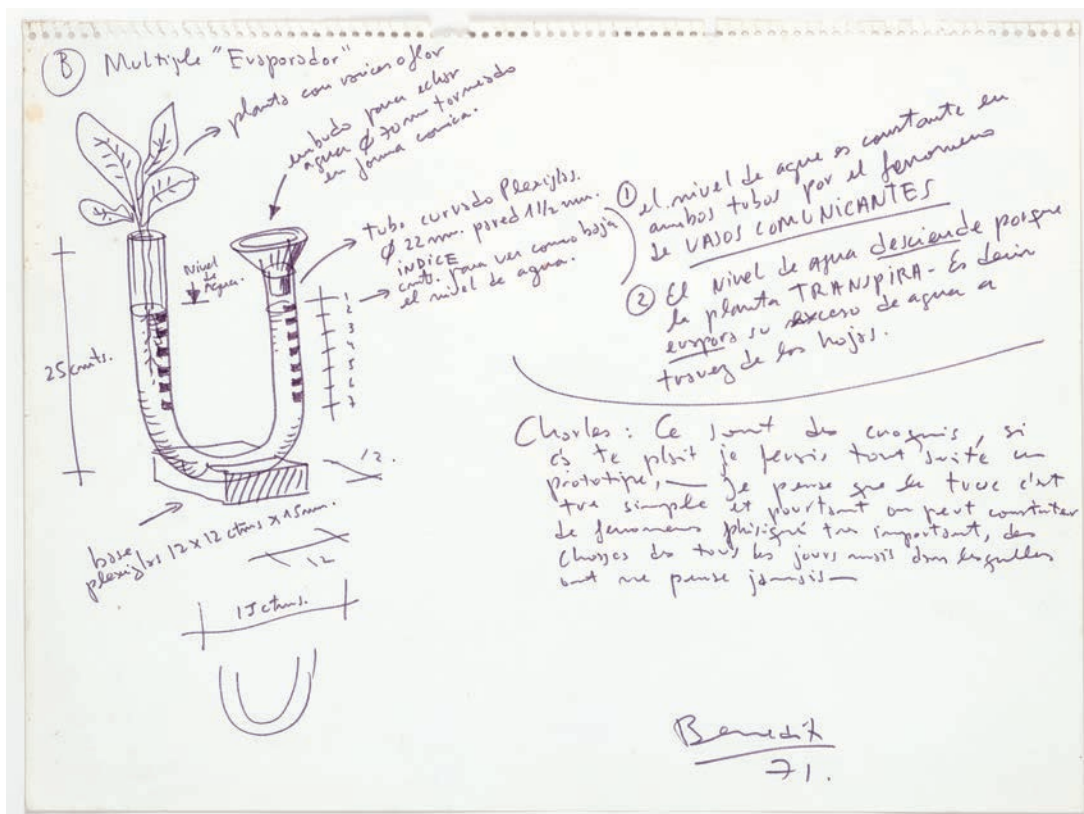 B Multiple "Evaporador"
planta con raices o flor
embudo para echar
agua Ø 70 mm torneado
en forma conica.
tubo curvado Plexiglas.
Ø 22 mm. pared 1 1/2 mm.
INDICE
cmts. para ver como baja
el nivel de agua.
Nivel
de
Agua.
1
2
3
4
5
6
7
25 cmts.
12.
base
plexiglas 12 x 12 ctms x 15 mm.
12
15 ctms.
1 el nivel de agua es constante en
ambos tubos por el fenomeno
de VASOS COMUNICANTES
2 El Nivel de agua desciende porque
la planta TRANSPIRA - Es decir
evapora su exceso de agua a
travez de las hojas.
Charles : Ce sont des croquis, si
ça te plait je ferais tout suite un
prototipe, — Je pense que le truc c'est
tre simple et pourtant on peut constater
de fenomens phisique tres important, des
choses de tous les jours mais dans lesquelles
ont ne pense jamais —
Benedit
71.